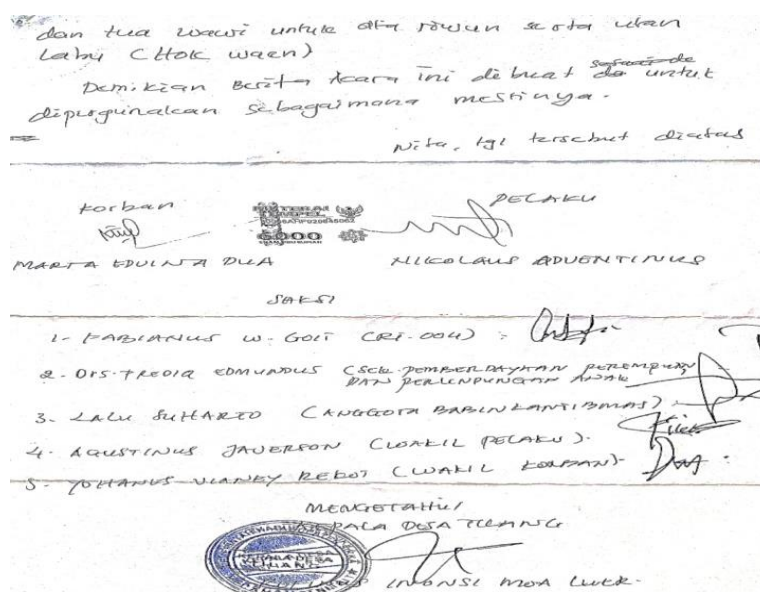 dan tua wawi untuk ata rowun serta utan
Labu (Hok waen)
Demikian Berita Acara ini dibuat untuk
dipergunakan sebagaimana mestinya.
Nita, tgl tersebut diatas
Korban
PELAKU
METERAI
TEMPEL
6000
MARTA EDUINTA DUA
NIKOLAUS ADVENTINUS
SAKSI
1. FABIANUS W. GOIT (RT.004) :
2. Drs. FREDIQ EDMUNDUS (SEK. PEMBERDAYAAN PEREMPUAN
DAN PERLINDUNGAN ANAK
3. LALU SUHARTO (ANGGOTA BABINKANTIBMAS) :
4. AGUSTINUS JAVERSON (WAKIL PELAKU).
5. YOHANUS VIANEY REBOT (WAKIL KORBAN).
MENGETAHUI
KEPALA DESA TILANG
KEPALA DESA
TILANG
INONSI MOA